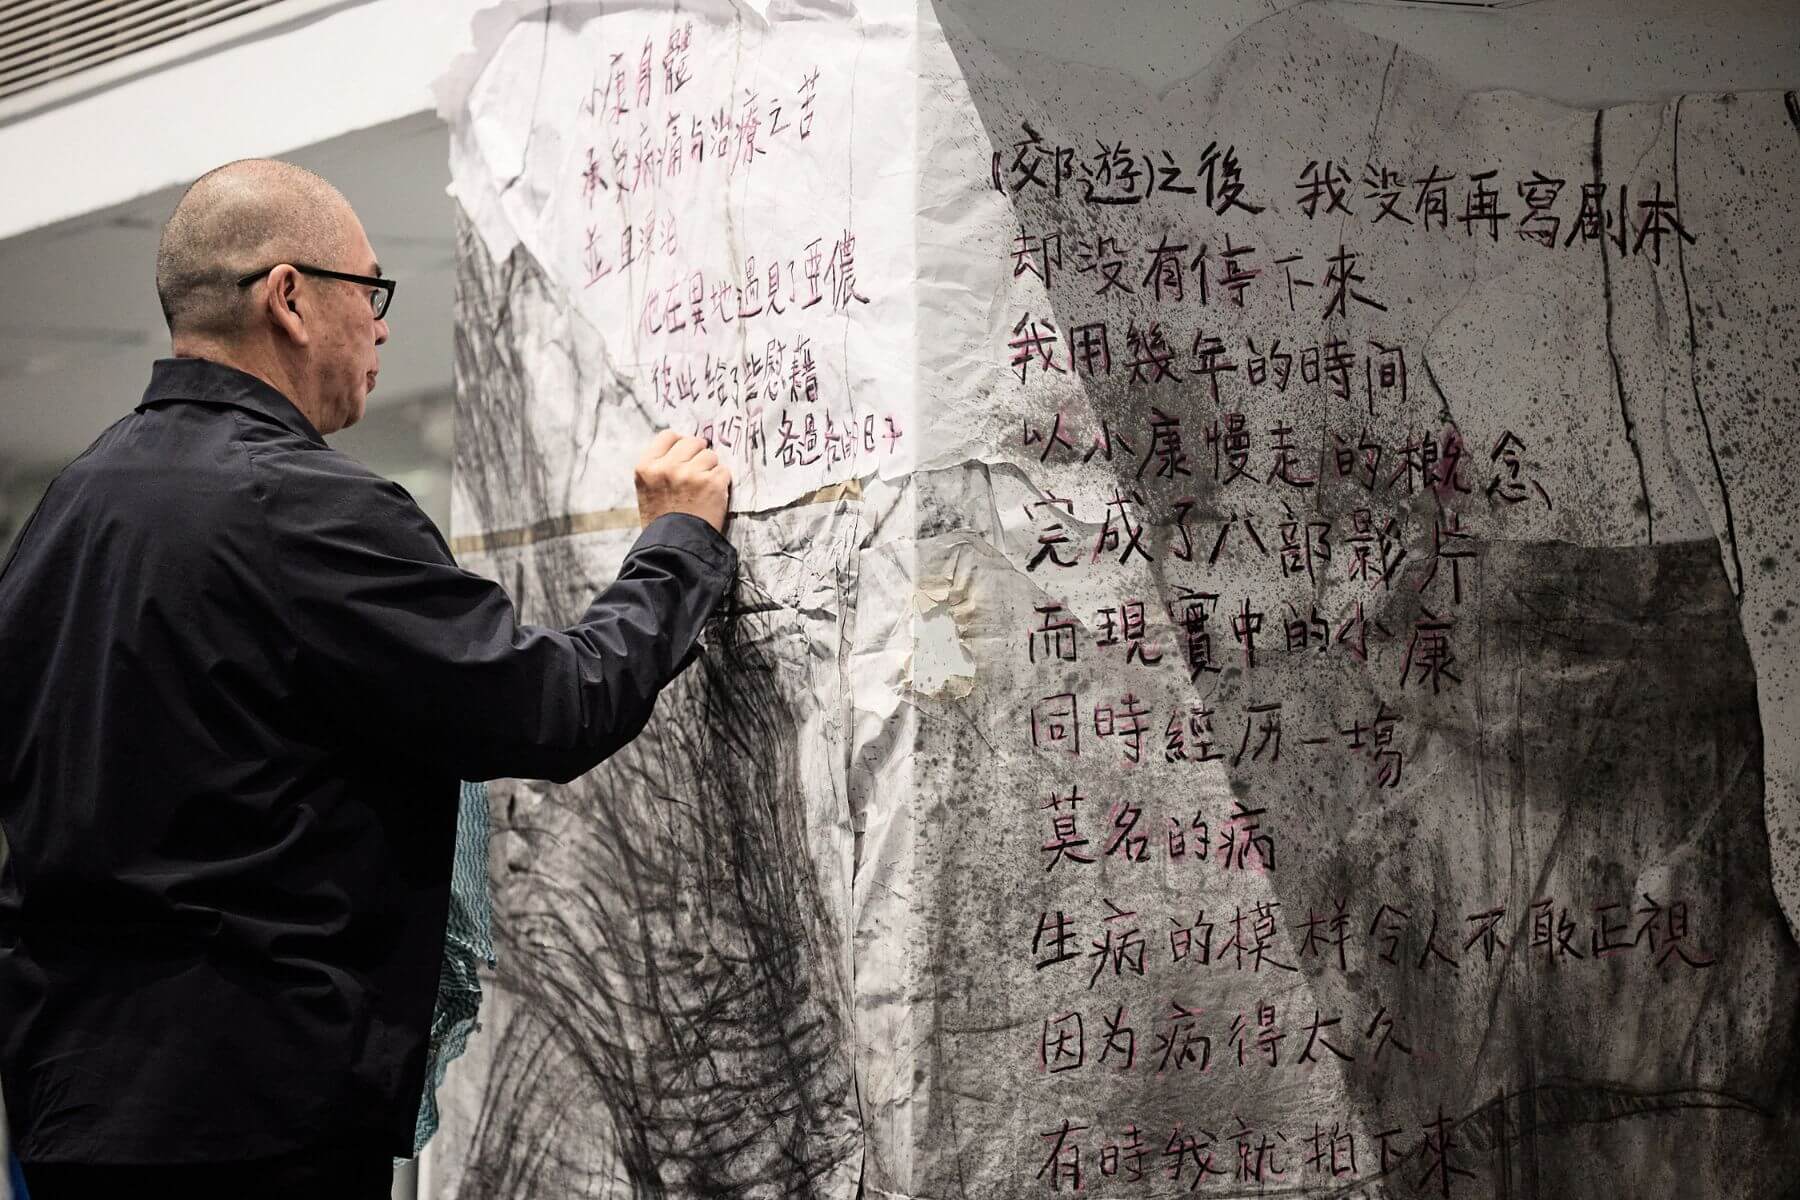 小康身體
承受病痛与治療之苦
並且漂泊
他在異地遇見了亞儂
彼此給了些慰藉
各過各的日子
(郊遊)之後 我没有再寫劇本
却没有停下來
我用幾年的時间
以小康慢走的概念
完成了八部影片
而現實中的小康
同時經历一場
莫名的病
生病的模样令人不敢正視
因为病得太久
有時我就拍下來